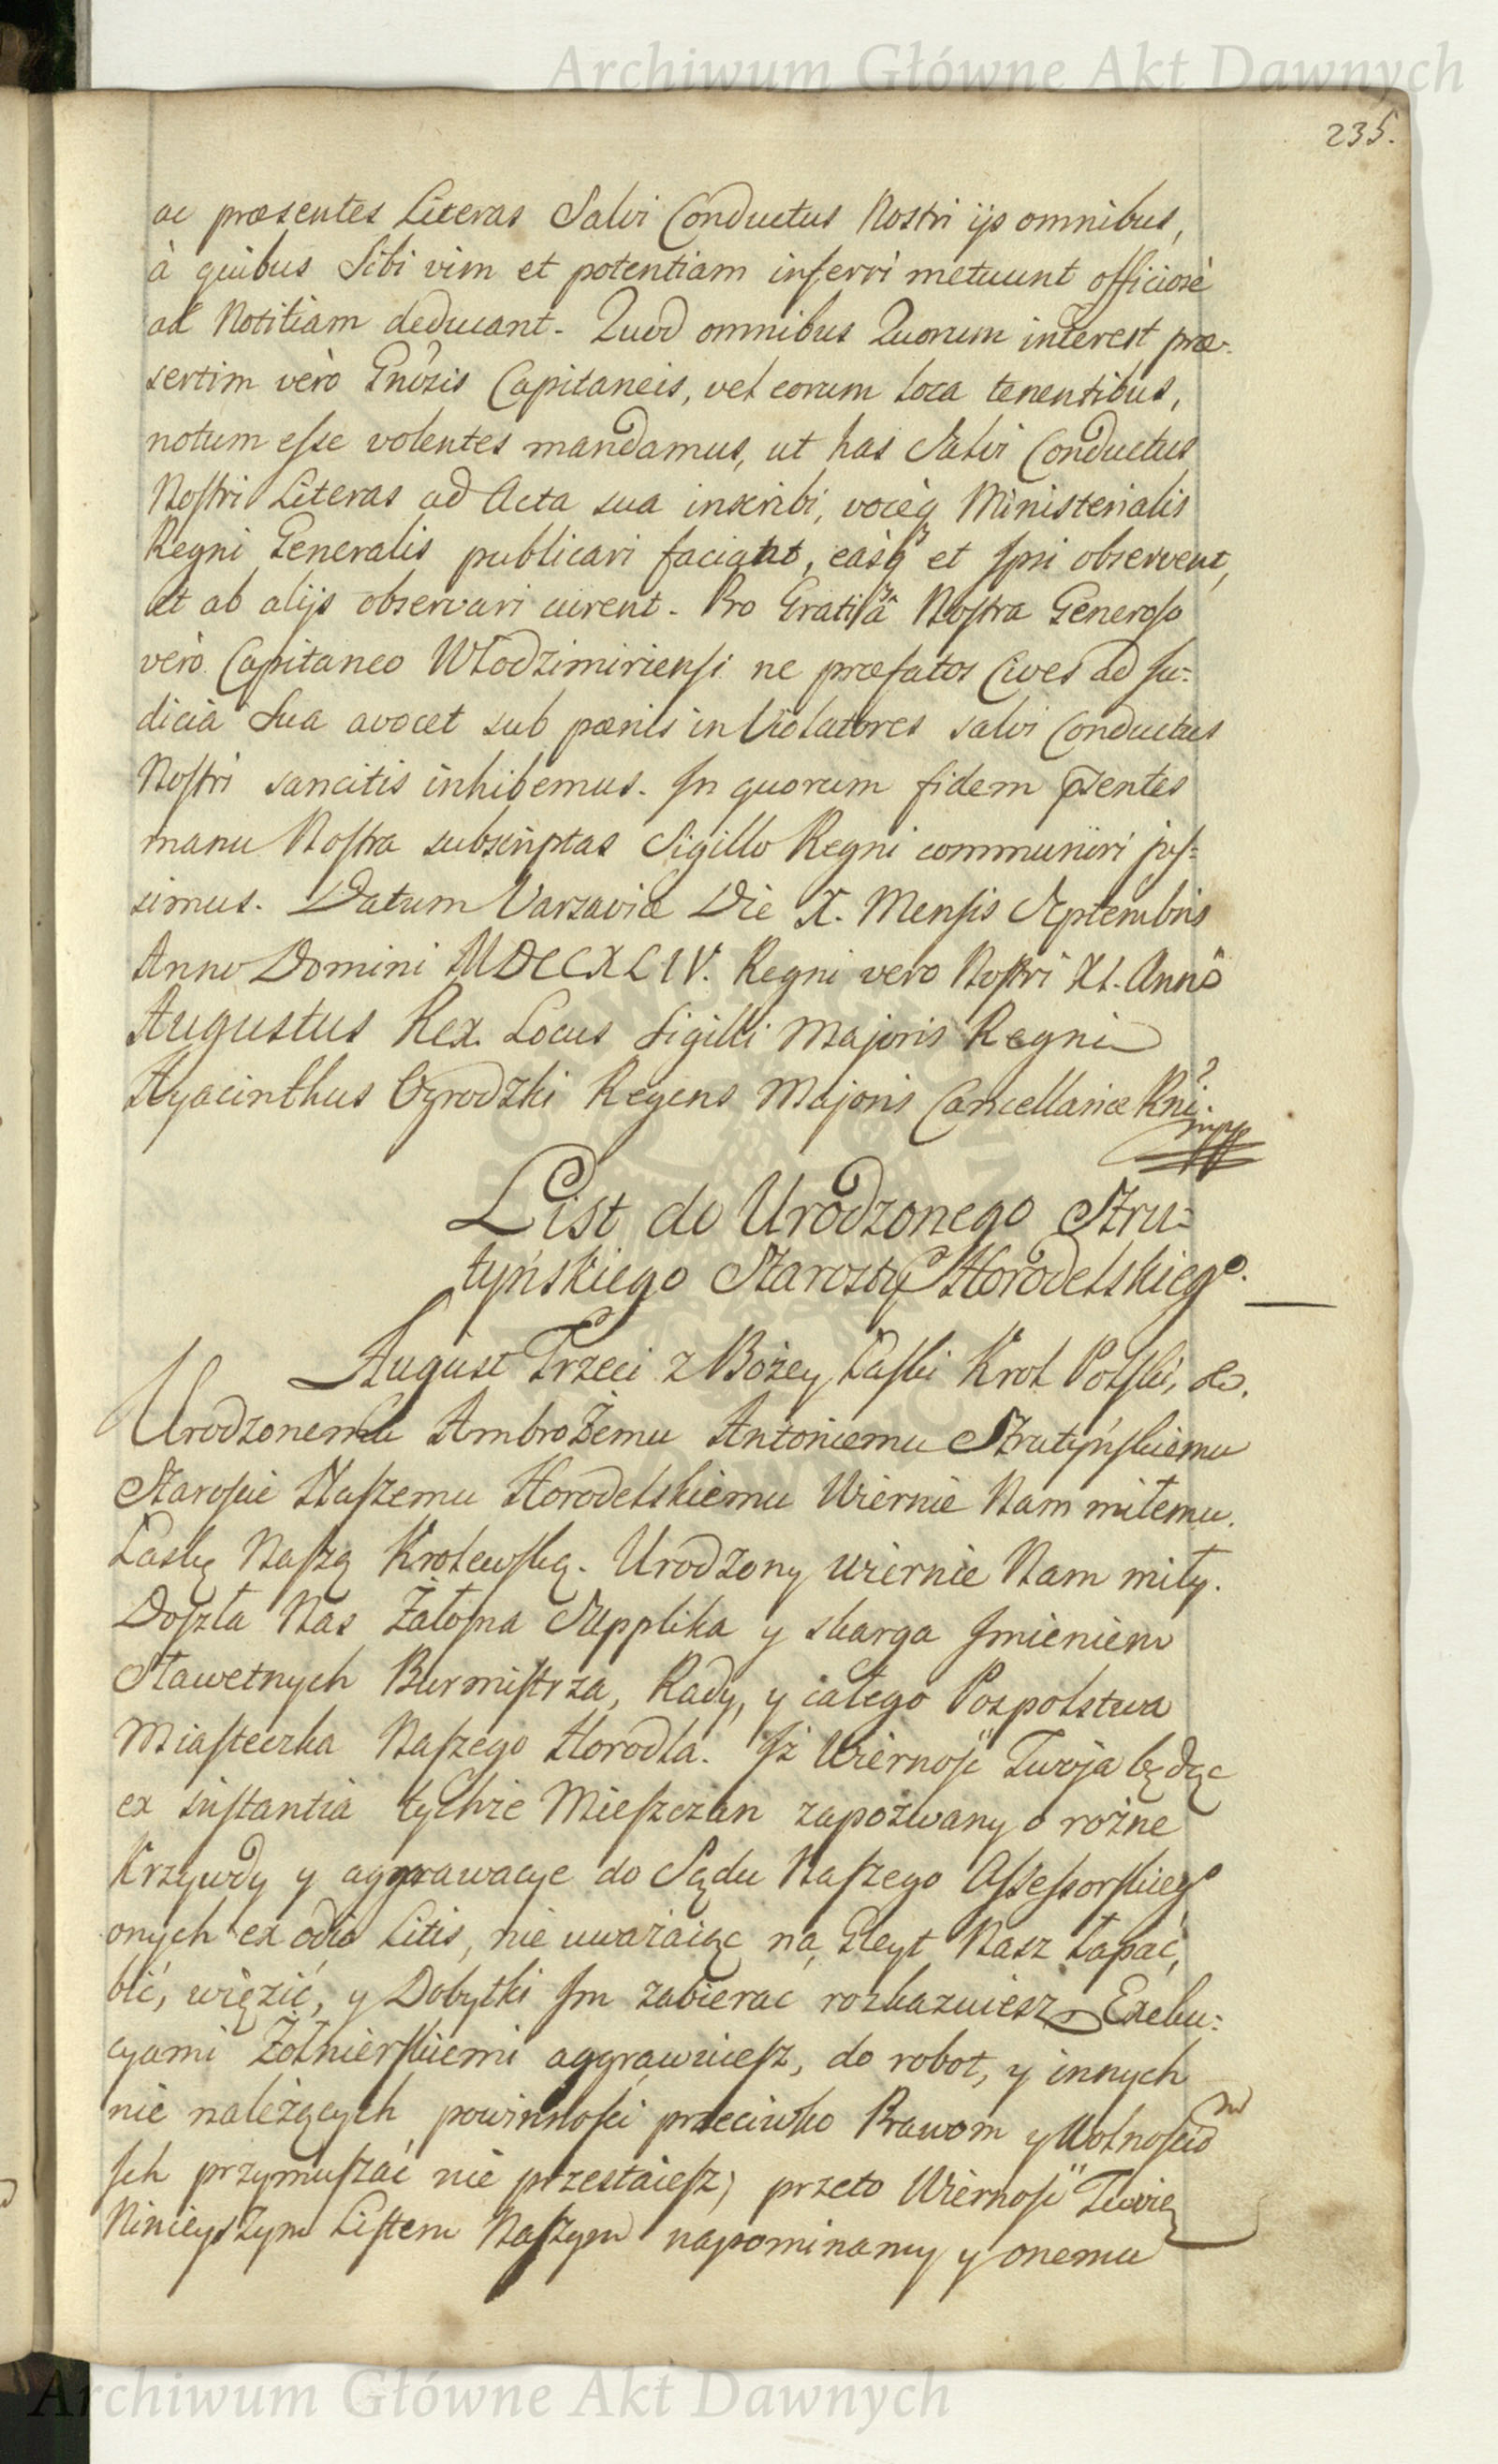 Archiwum Główne Akt Dawnych
235.
ac præsentes Literas Salvi Conductus Nostri ijs omnibus,
à quibus Sibi vim et potentiam inferri metuunt officiosè
ad Notitiam deducant. Quod omnibus Quorum interest præ-
sertim verò Gnosis Capitaneis, vel eorum loca tenentibus,
notum esse volentes mandamus, ut has Salvi Conductus
Nostri Literas ad Acta sua inscribi, vocèq Ministerialis
Regni Generalis publicari faciant, easq et Ipsi observent,
et ab alijs observari curent. Pro Gratiâ Nostra Generoso
verò Capitaneo Włodzimiriensi ne præfatos Cives ad Ju=
dicia Sua avocet sub pænis in Violatores salvi Conductus
Nostri sancitis inhibemus. In quorum fidem psentes
manu Nostra subscriptas Sigillo Regni communiri jus=
simus. Datum Varsaviæ Die X. Mensis Septembris
Anno Domini MDCCXLIV. Regni vero Nostri XI. Annô
Augustus Rex. Locus Sigilli Majoris Regni
Hyacinthus Ogrodzki Regens Majoris Cancellariæ Rni.
mpp
List do Urodzonego Stru=
tyńskiego Starosty Horodelskiego.
August Trzeci z Bożey Łaski Krol Polski, &.
Urodzonemu Ambrożemu Antoniemu Strutyńskiemu
Staroście Naszemu Horodelskiemu Wiernie Nam miłemu.
Łaskę Naszą Krolewską. Urodzony wiernie Nam miły.
Doszła Nas Żałosna Supplika y skarga Imieniem
Sławetnych Burmistrza, Rady, y całego Pospolstwa
Miasteczka Naszego Horodła. Iż Wierność Twoja będąc
ex instantia tychże Mieszczan zapozwany o rożne
Krzywdy y aggrawacye do Sądu Naszego Assessorskiego
onych ex odio Litis, nie uważaiąc na Gleyt Nasz łapać,
bić, więzić, y Dobytki Im zabierac rozkazuiesz, Exeku=
cyami Żołnierskiemi aggrawuiesz, do robot, y innych
nie należących powinności przeciwko Prawom y Wolnościom
Ich przymuszać nie przestaiesz, przeto Wierność Twoię
Ninieyszym Listem Naszym napominamy y onemu
Archiwum Główne Akt Dawnych